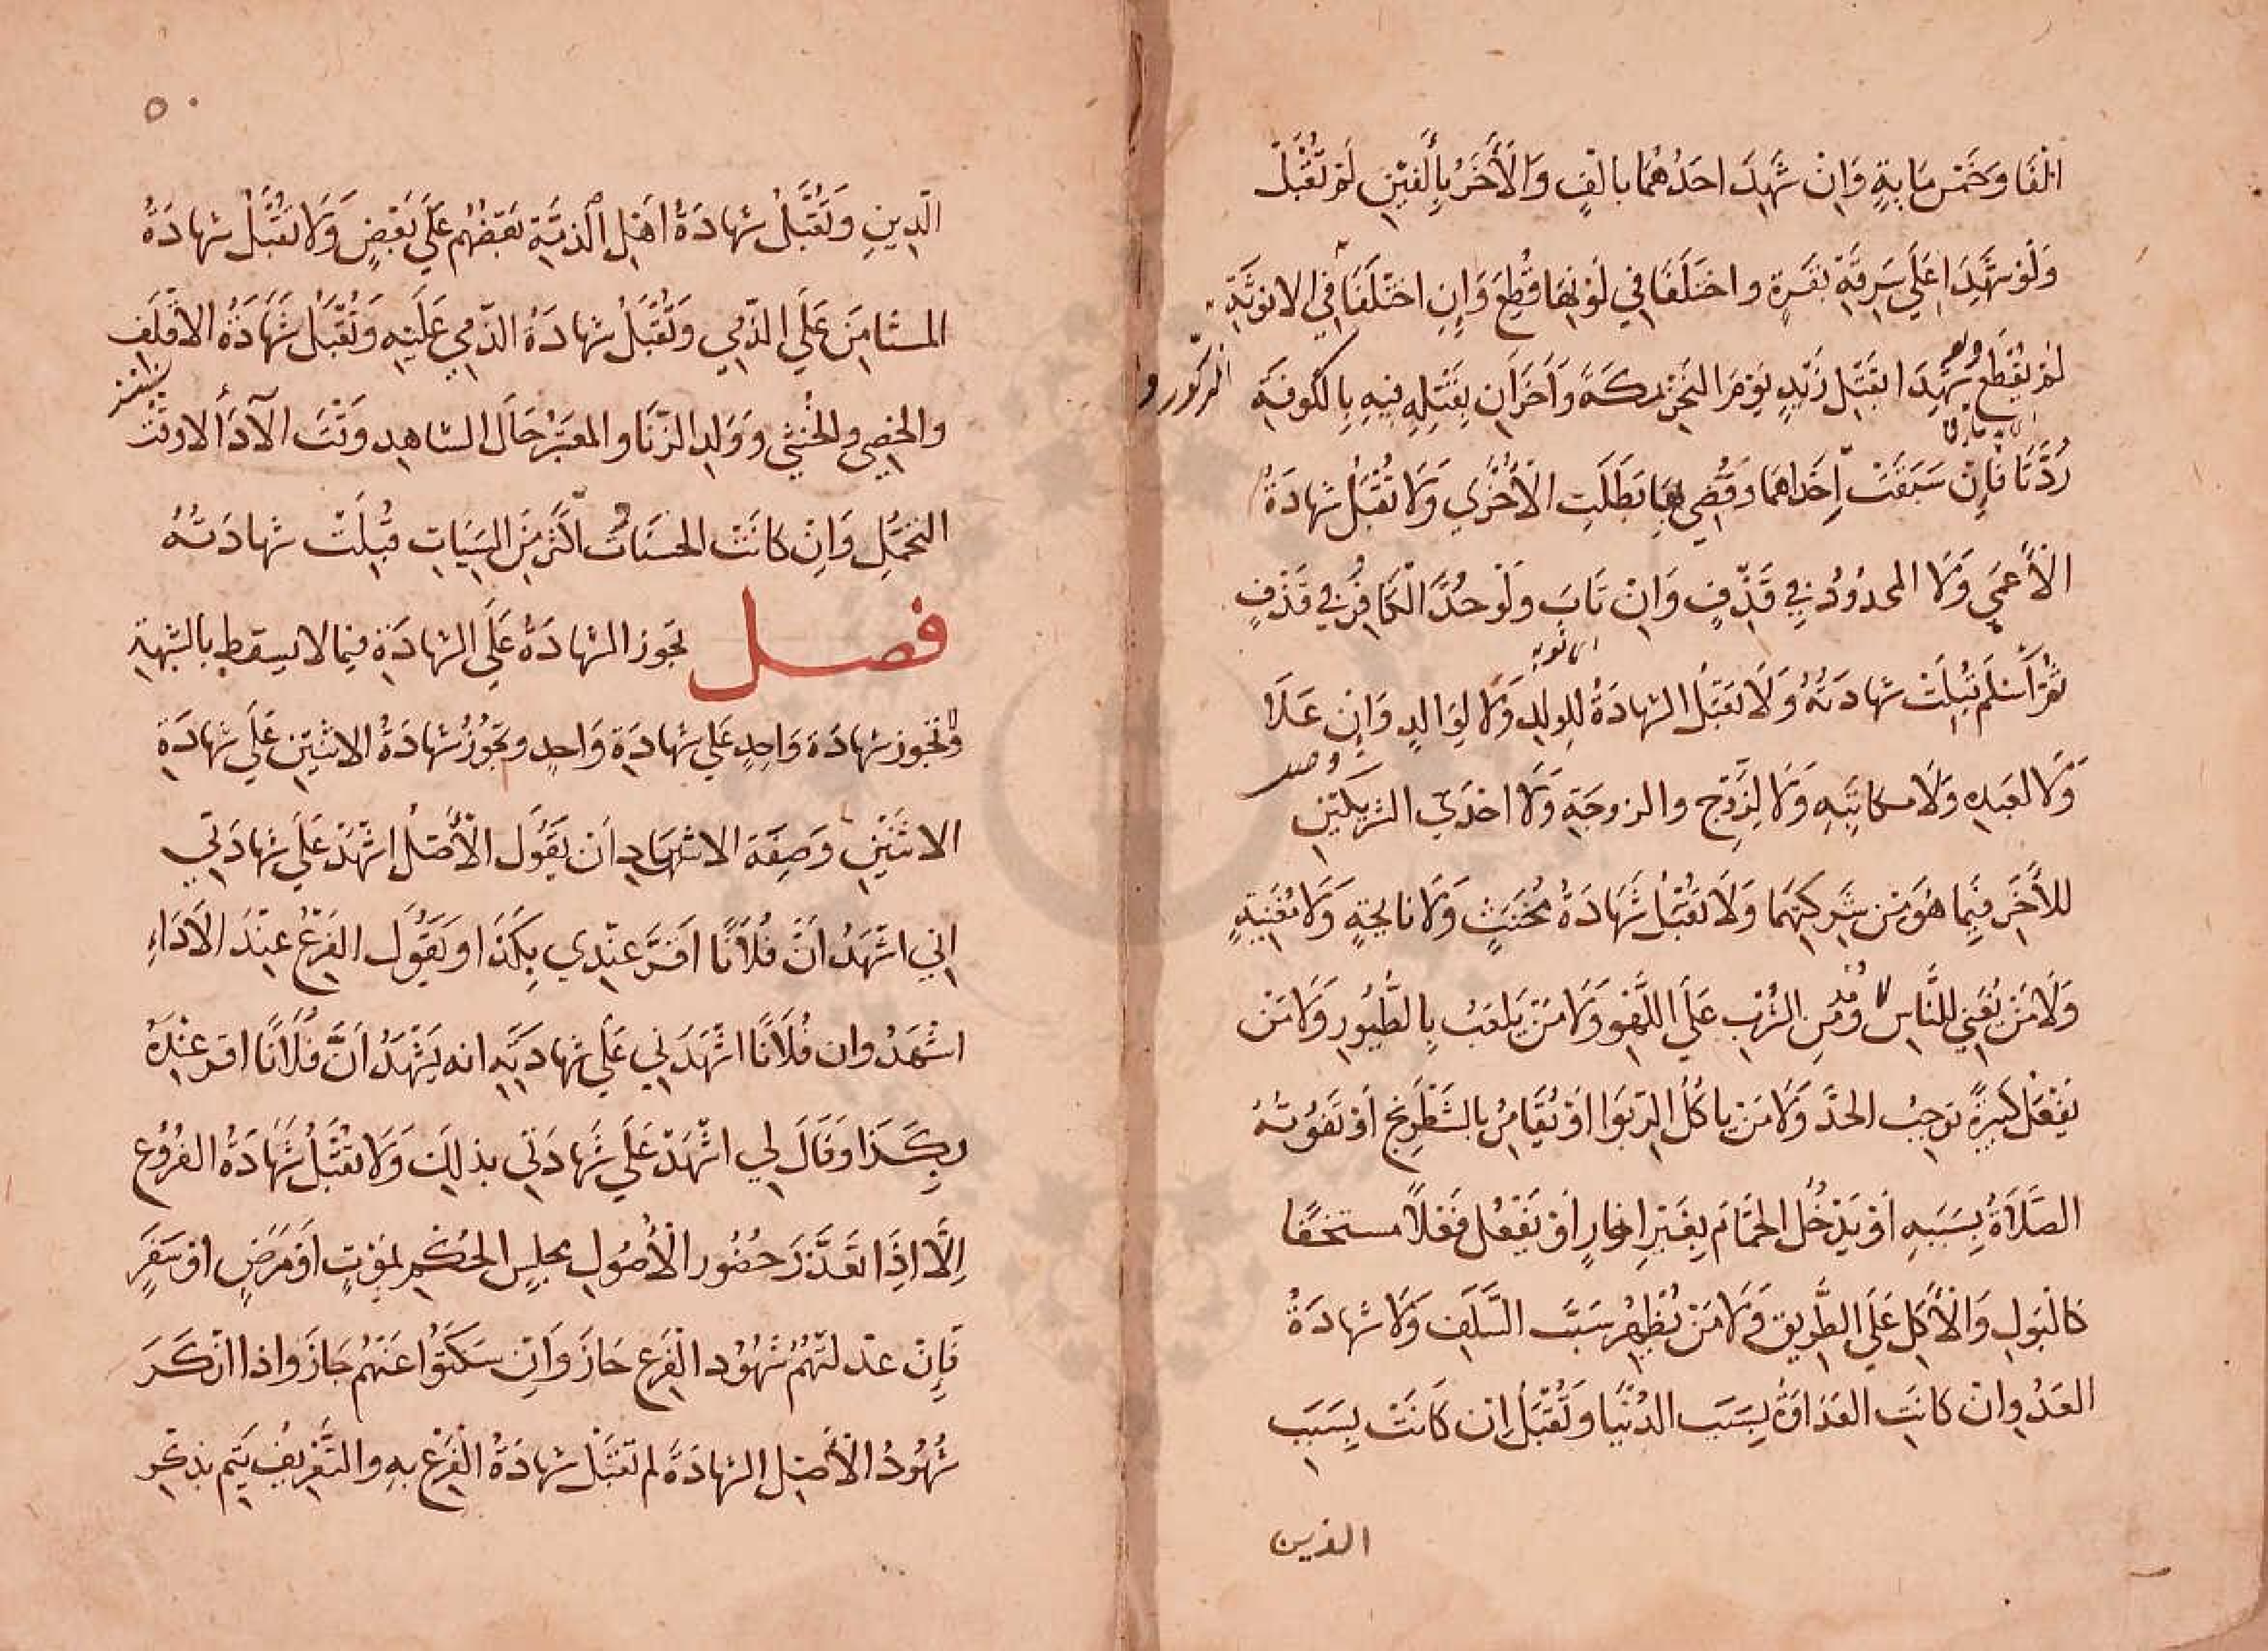 الْفًا وَخَمْس مَايةٍ وَاِنْ شَهِدَ احَدُهُمَا بالْفٍ وَالْأَخَرُ بِأَلْفَيْنِ لَمْ تُقْبَلْ
وَلَوْ شَهِدَا عَلَي سَرِقَةِ بَقَرَةٍ واختَلَفَا فِي لَوْنِهَا قُطِعَ وَاِنِ اخْتَلَفَا فِي الانوثَةِ
الذكورة و
لَمْ يُقْطَع وَلو شَهِدَا بقَتْل زَيْدٍ يَوْمَ النَحْرِ بمكةَ وَأَخَرَانِ بِقَتْلِهِ فِيهِ بِالكُوفَةِ
رُدَّتَا فَاِنْ سَبَقَتْ اِحْدَاهمَا وَقُضِي بِهَا بَطَلَتِ الْأُخْرَي وَلَا تُقْبَلُ شهَادَةُ
الْأَعْمَي وَلَا المحدُوْدُ فِي قَذْفٍ وَاِنْ تَابَ وَلَوْ حُدَّ الْكَافِرُ فِي قَذْفٍ
ثُمَّ أَسْلَمَ قُبِلَتْ شهادَتُهُ وَلَا تُقْبَلُ الشهادَةُ لِلولِدِ وَلَا لِوَالدٍ وَاِنْ عَلَا
وَلَا لعَبْدِهِ وَلَا مكاتبِهِ وَلَا لِزَوْجِ والزوجَةِ وَلَا احْدَي الشرِيكَيْنِ
للأَخَرِ فِيمَا هُوَ مِنْ شِركتِهِمَا وَلَا تُقْبَلُ شَهَادَةُ مُخَنَثٍ وَلَا نايحَةٍ وَلَا مُغَنِّيَةٍ
وَلَا مَنْ يُغَنِي للنَّاسِ وَلَا مُدْمِنِ الشُرْبِ عَلَي اللَّهْوِ وَلَا مَنْ يَلعَبُ بِالطُيُورِ وَلَا مَنْ
يَفْعَلُ كَبِيرَةً تُوجِبُ الحدَّ وَلَا مَنْ ياكُلُ الرِبَوا اوْ يُقَامِرُ بالشَطَرنجِ أَوْ تَفُوتُهُ
الصَّلَاةُ بِسَبَبِهِ أَوْ يَدْخُلُ الحَمَّامَ بِغَيْرِ ازارٍ أَوْ يَفْعُل فعْلاً مستخفًا
كالْبَولِ وَالْأَكِلِ عَلَي الطَّرِيقِ وَلَا مَنْ يُظهِرُ سَبَّ السَّلَفِ وَلَا شهادَةُ
العَدُوِ اِنْ كانَتِ العَدَاوَةُ بِسَبَبِ الدُنْيَا وَتُقْبَلُ اِنْ كَانَتْ بِسَبَبِ
الدين
٥٠
الدِينِ وَتُقْبَلُ شهادَةُ اَهْلِ الذِمَّةِ بَعْضُهُمْ عَلَي بَعْضٍ وَلَا تُقْبَلُ شهادَةُ
المستَامَنِ عَلَي الذِّمِي وَتُقْبَلُ شهادَةُ الذّمِي عَلَيْهِ وَتُقْبَلُ شَهَادَةُ الاقْلَفِ
والخصِي والخُنْثِي وَوَلدِ الزّنَا والمعتَبَرُ حَالَ الشاهدِ وَقْتَ الأَدَاءِ لا وَقْتَ
التحمُلِ وَاِنْ كانَتْ الحسَنَاتُ اكْثَرَ مِنَ السَيِّاتِ قُبِلَتْ شهادَتُهُ
فصل تجُوز الشهادَةُ عَلَي الشهادَةِ فيما لا يسقط بالشبهةِ
وَتجُوز شهادَة وَاحِدٍ عَلَي شهادَةِ وَاحدٍ وتجُوزُ شهَادَةُ الاثنَيْنِ عَلَي شهادَةِ
الاثنَيْنِ وَصِفَة الاشْهادِ اَنْ يَقُولَ الْأَصْلُ اشْهَدْ عَلَي شهادَتِي
اِنِي اشْهَدُ اَنَّ فُلَانًا اَقَرَّ عِنْدِي بِكَذَا وَيَقُولَ الفَرْعُ عِنْدَ الْأَدَاءِ
اشْهَدُ وان فُلَانًا اشْهَدَنِي عَلَي شهادَتِهِ انه يَشْهَدُ اَنَّ فُلَانًا اقر عنْدَهُ
بِكَذَا وَقَالَ لِي اشْهَدْ عَلَي شَهَادَتِي بذلِكَ وَلَا تُقْبَلُ شَهَادَةُ الفُرُوْعِ
اِلَّا اِذَا تَعَذَّرَ حُضُور الْأُصُولِ مجلِسَ الحُكْمِ لمَوْتٍ أَوْ مَرَضٍ اَوْ سَفَرٍ
فَاِنْ عدلتهُمْ شُهُوْد الْفَرعِ جَازَ وَاِنْ سَكَتُوا عَنهُمْ جَازَ واذا انْكَرَ
شُهُوْدُ الْأَصْلِ الشهادَةَ لم تُقْبَلْ شهادَةُ الْفَرْعِ بهِ والتَعْرِيفُ يَتِم بذكْرِ